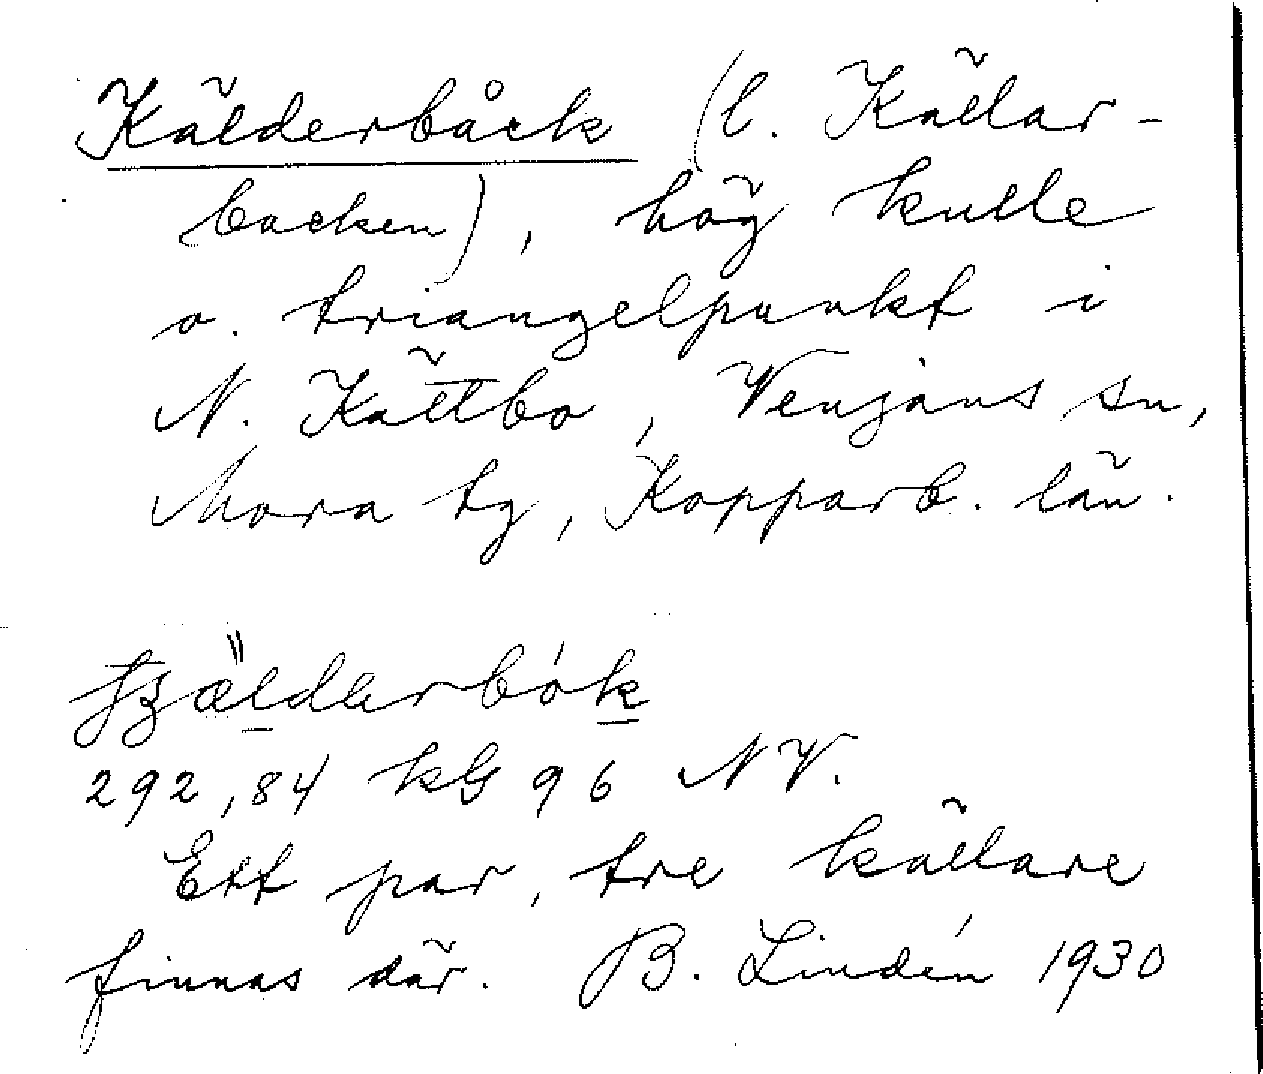 Kälderbåck (l. Källar-
backen), hög kulle
o. triangelpunkt i
N. Kättbo, Venjans sn,
Mora tg, Kopparb. län.
292,84 kG 96 NV.
Ett par, tre källare
finnas där. B. Lindén 1930